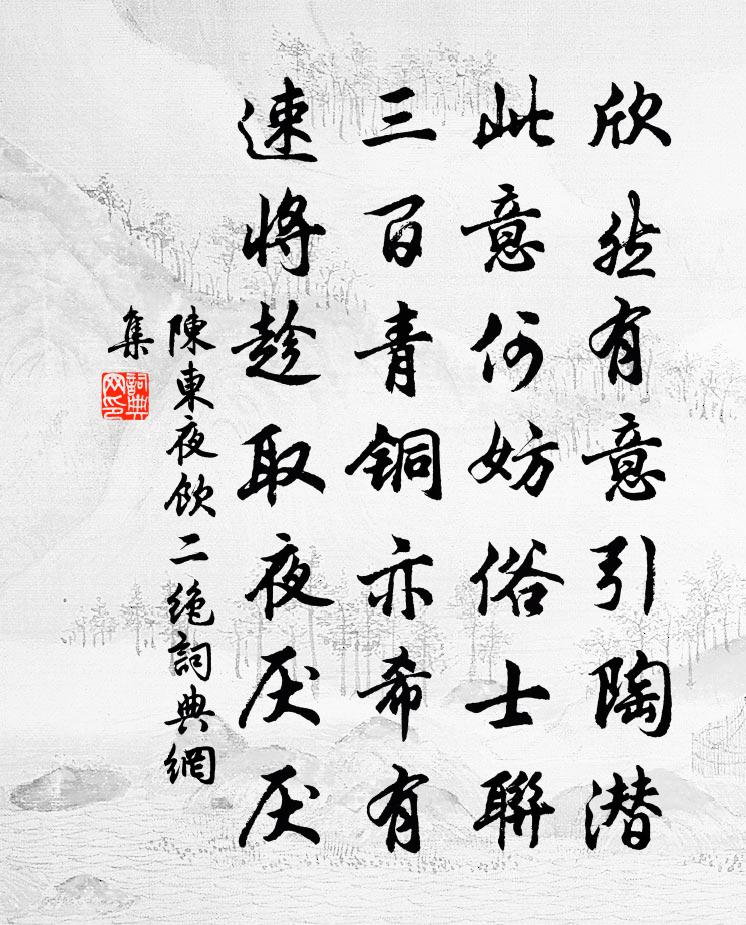 欣然有意引陶潜
此意何妨俗士聯
三百青铜亦希有
速将趁取夜厌厌
陳東夜飲二絶詞典網
集
詞典
网印